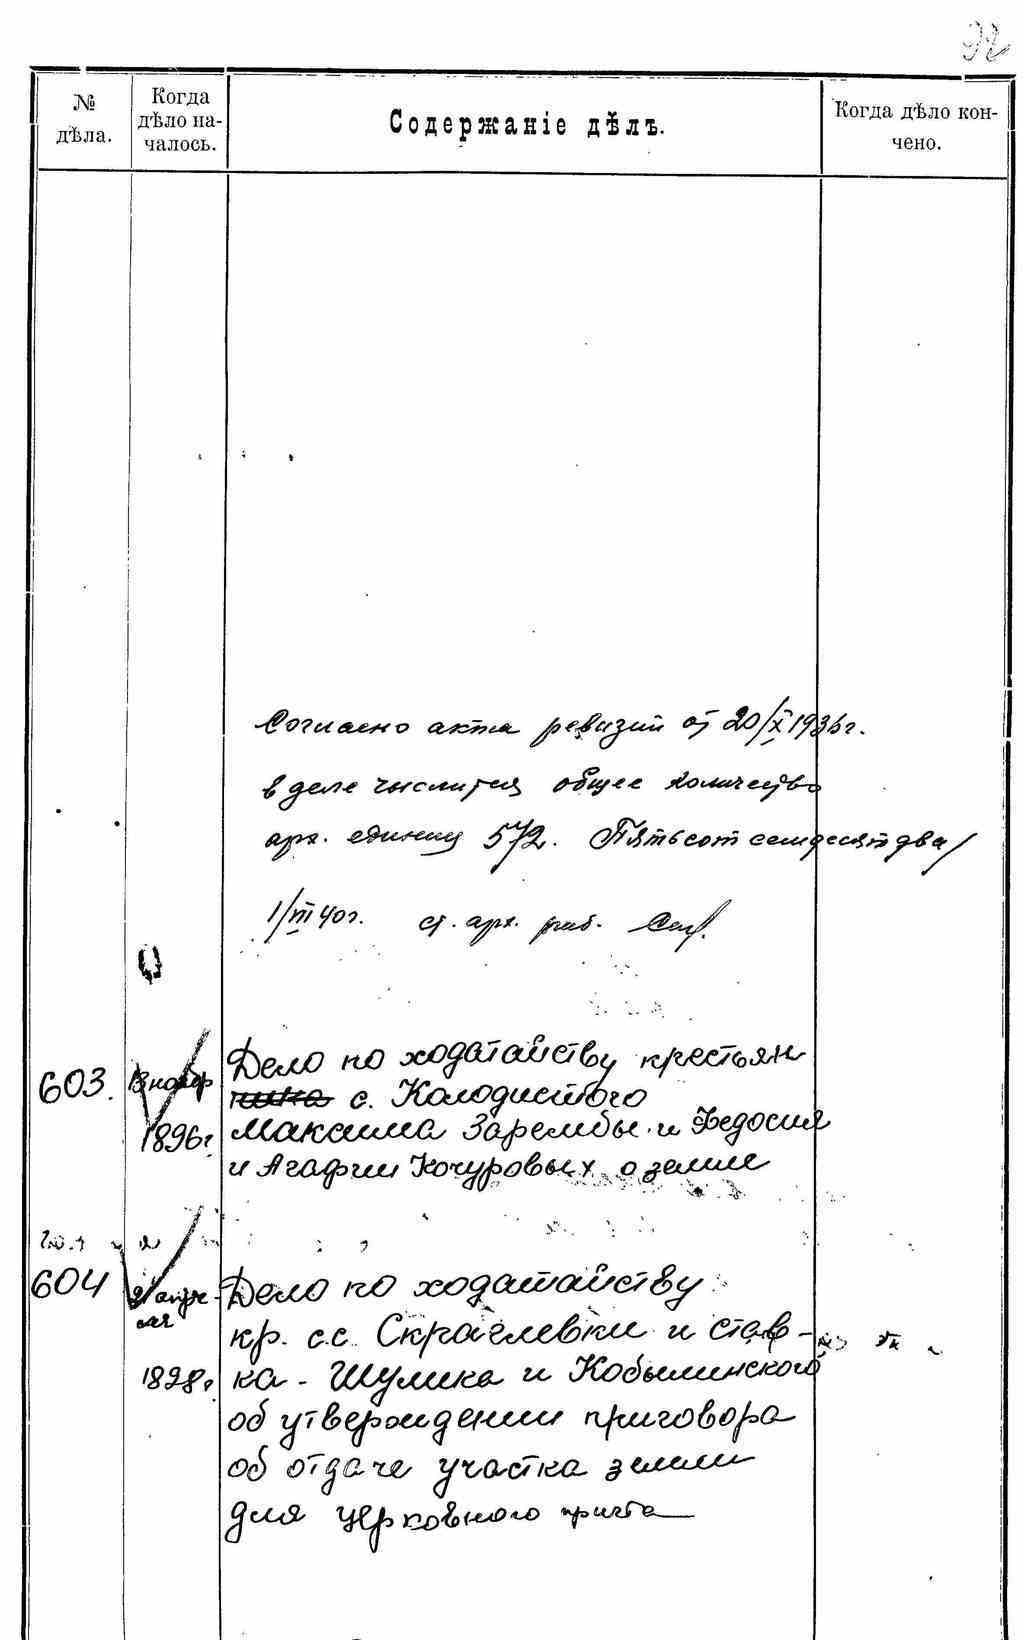 92
№ дѣла.
Когда дѣло на-чалось.
Содержаніе дѣлъ.
Когда дѣло кон-чено.
Согласно акта ревизии от 20/X 1936г.
в деле числится общее количество
арх. единиц 572. Пятьсот семдесят два/
1/III 40г. ст. арх. раб.
603. 13 нояб Дело по ходатайству крестьян
с. Колодистого
1896г. Максима Зарембы и Федосия
и Агафии Кочуровых о земле
604 21 апре- Дело по ходатайству
ля кр. с.с. Скраглевки и став-
1898г. ка - Шулика и Кобылинского
об утверждении приговора
об отдаче участка земли
для церковного причта